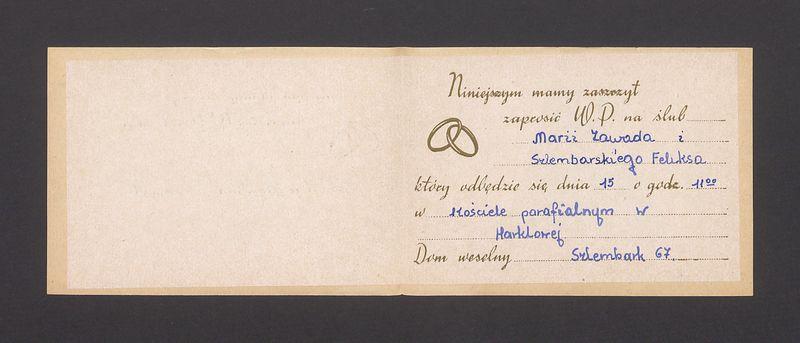 Niniejszym mamy zaszczyt
zaprosić W.P. na ślub
Marii Zawada i
Szlembarskiego Feliksa
który odbędzie się dnia 15 o godz. 11⁰⁰
w kościele parafialnym w
Harklowej
Dom weselny Szlembark 67.